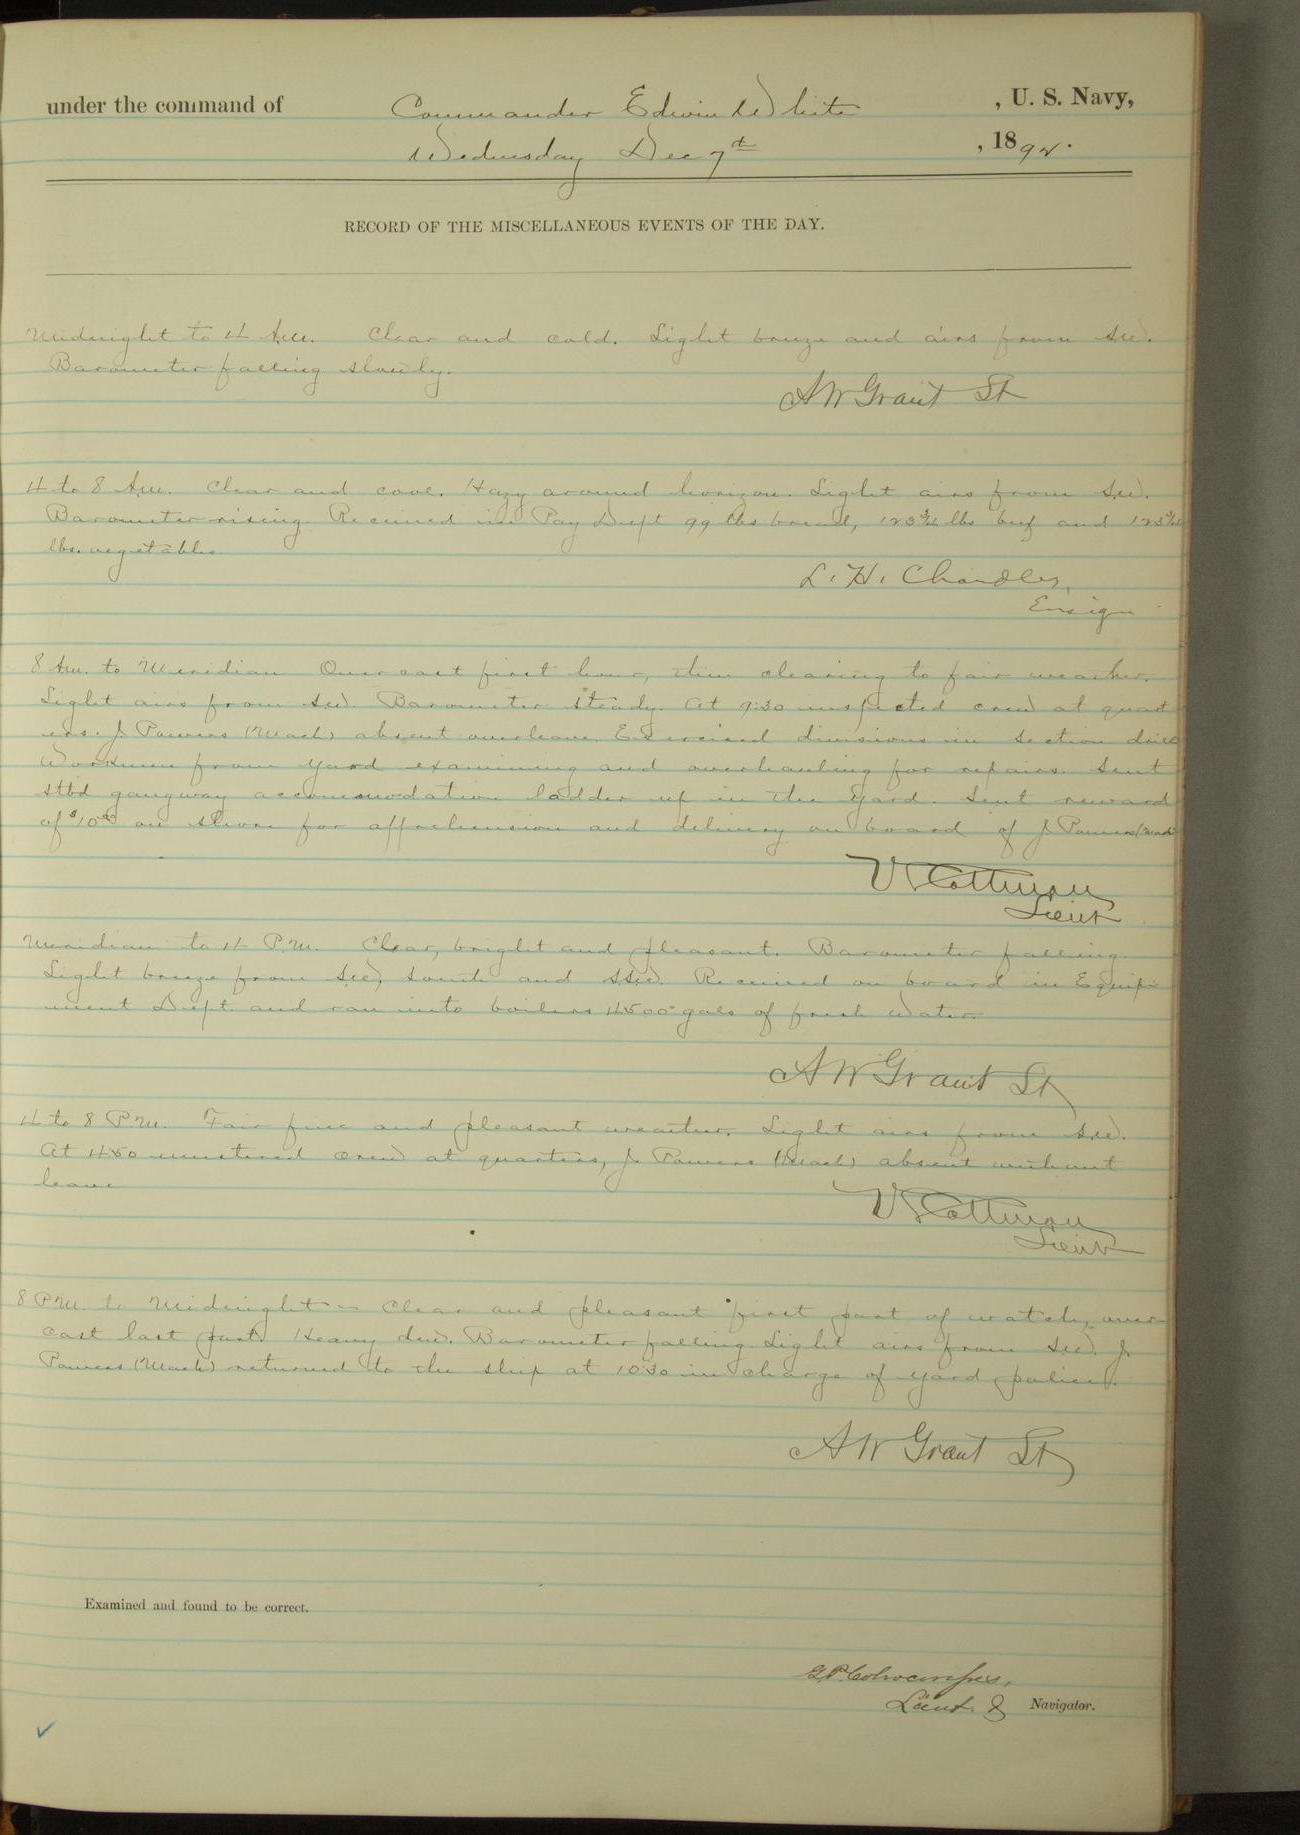 under the command of Commander Edwin White, U. S. Navy,
Wednesday Dec 7th, 1892.
RECORD OF THE MISCELLANEOUS EVENTS OF THE DAY.
Midnight to 4 Am. Clear and cold. Light breeze and airs from Sw.
Barometer falling slowly.
A W Grant Lt
4 to 8 Am. Clear and cool. Hazy around horizon. Light airs from Sw.
Barometer rising. Received in Pay Dept 99 lbs bread, 123 3/4 lbs beef and 123 3/4
lbs. vegetables
L. H. Chandler,
Ensign
8 Am. to Meridian Overcast first hour, then clearing to fair weather.
Light airs from Sw. Barometer steady. At 9:30 inspected crew at quart
ers. J. Powers (Mach) absent overleave. Exercised divisions in section drill
Workmen from yard examining and overhauling for repairs. Sent
stbd gangway accommodation ladder up in the Yard. Sent reward
of $10 00 on shore for apprehension and delivery on board of J. Powers (Mach
V S Cottman
Lieut
Meridian to 4 P.M. Clear, bright and pleasant. Barometer falling.
Light breeze from Sw, South and SSw. Received on board in Equip-
ment Dept. and ran into boilers 4500 gals of fresh water.
A W Grant Lt
4 to 8 P.M. Fair fine and pleasant weather. Light airs from Sw.
At 4:50 mustered crew at quarters, J. Powers (Mach) absent without
leave
V S Cottman
Lieut
8 P.M. to Midnight - Clear and pleasant first part of watch, over-
cast last part. Heavy dew. Barometer falling. Light airs from Sw. J.
Powers (Mach) returned to the ship at 10:30 in charge of yard police.
A W Grant Lt
Examined and found to be correct.
G.P. Colvocoresses,
Lieut. & Navigator.